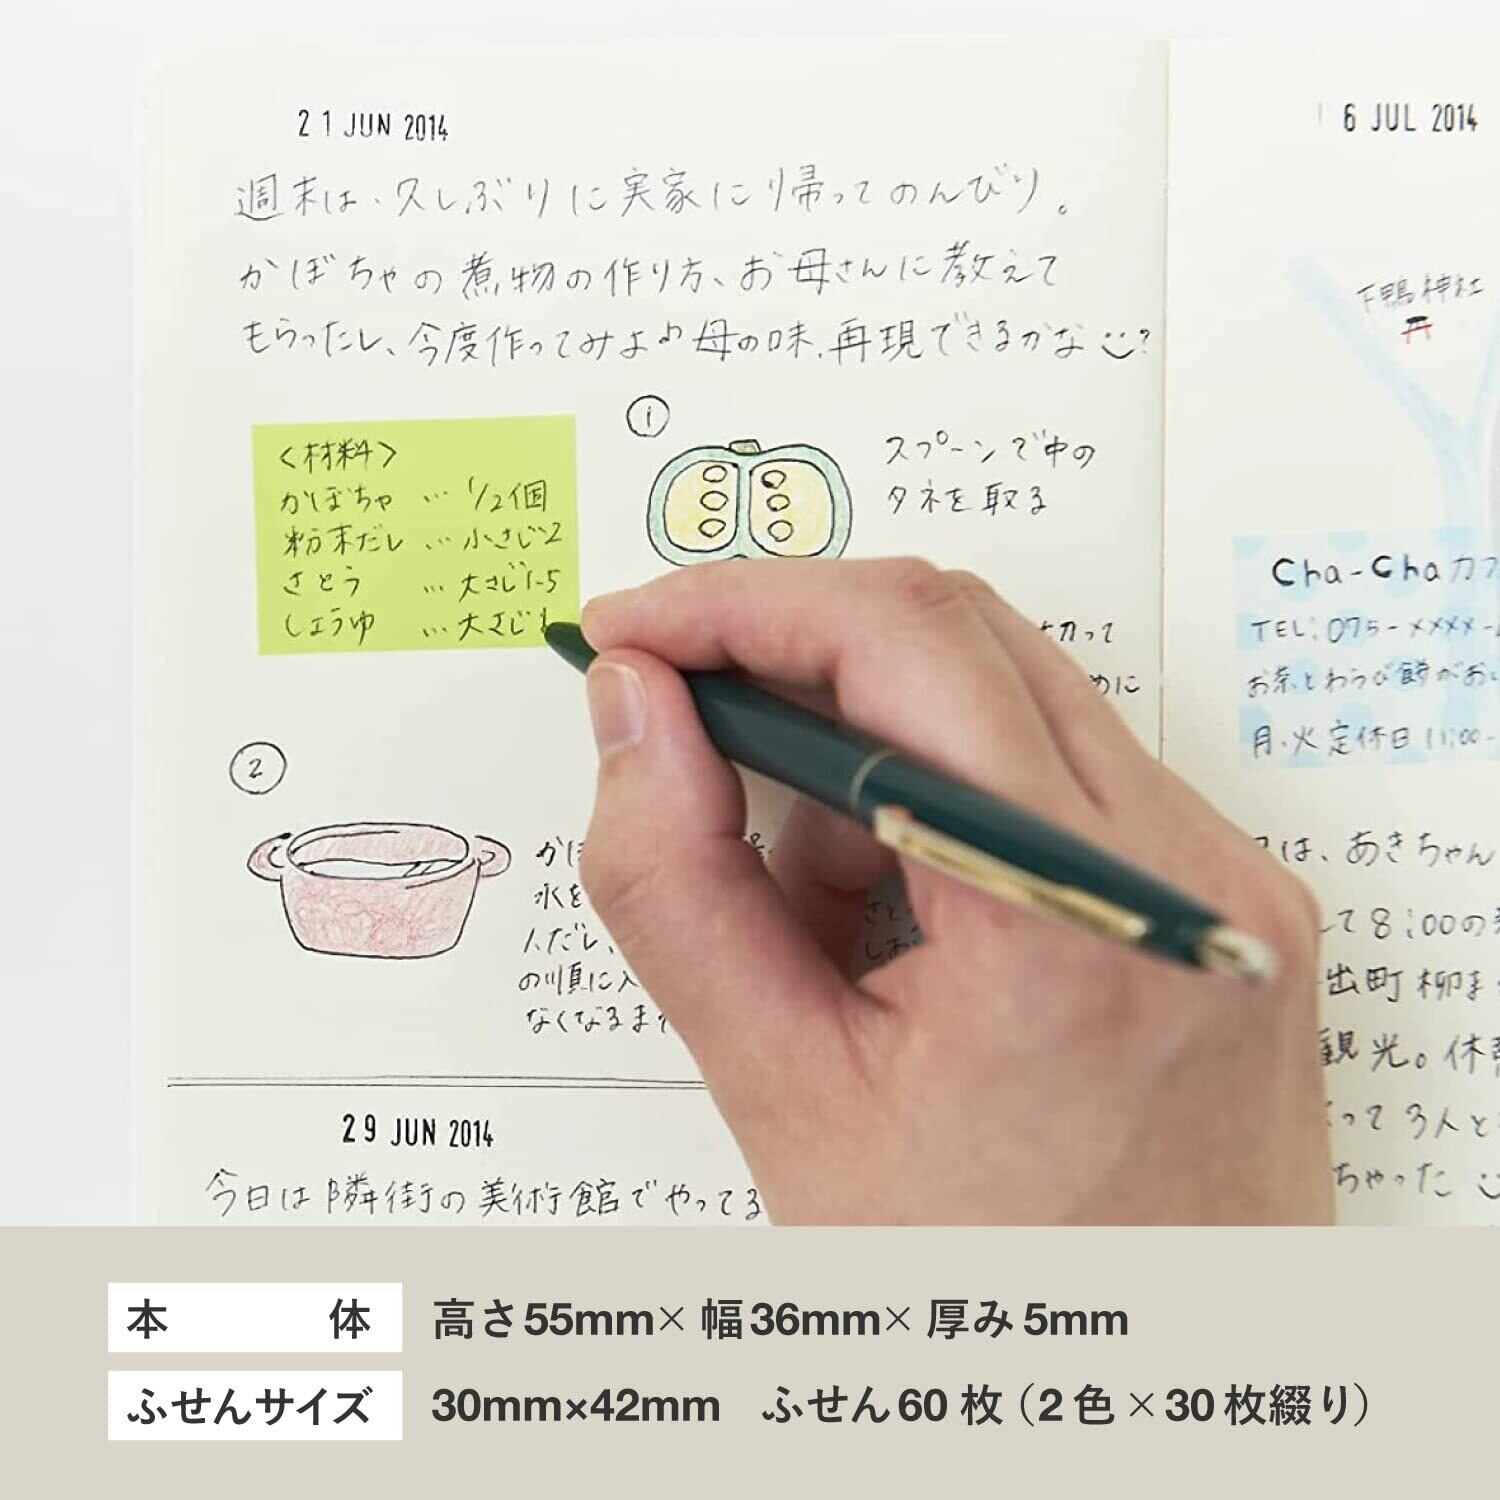 21 JUN 2014
週末は、久しぶりに実家に帰ってのんびり。
かぼちゃの煮物の作り方、お母さんに教えて
もらったし、今度作ってみよ♪母の味、再現できるかな?
<材料>
かぼちゃ … 1/2個
粉末だし … 小さじ2
さとう … 大さじ1.5
しょうゆ … 大さじ1
①
スプーンで中の
タネを取る
切って
めに
②
かぼ
水を
んだし、
の順に入
なくなるま
さと
しお
29 JUN 2014
今日は隣街の美術館でやってる
6 JUL 2014
下鴨神社
Cha-Chaカフ
TEL:075-××××-
お茶とわらび餅がおい
月、火定休日 11:00-
は、あきちゃん
して8:00の
出町柳ま
観光。休憩
って3人と
ちゃった
本体 高さ55mm×幅36mm×厚み5mm
ふせんサイズ 30mm×42mm ふせん60枚(2色×30枚綴り)